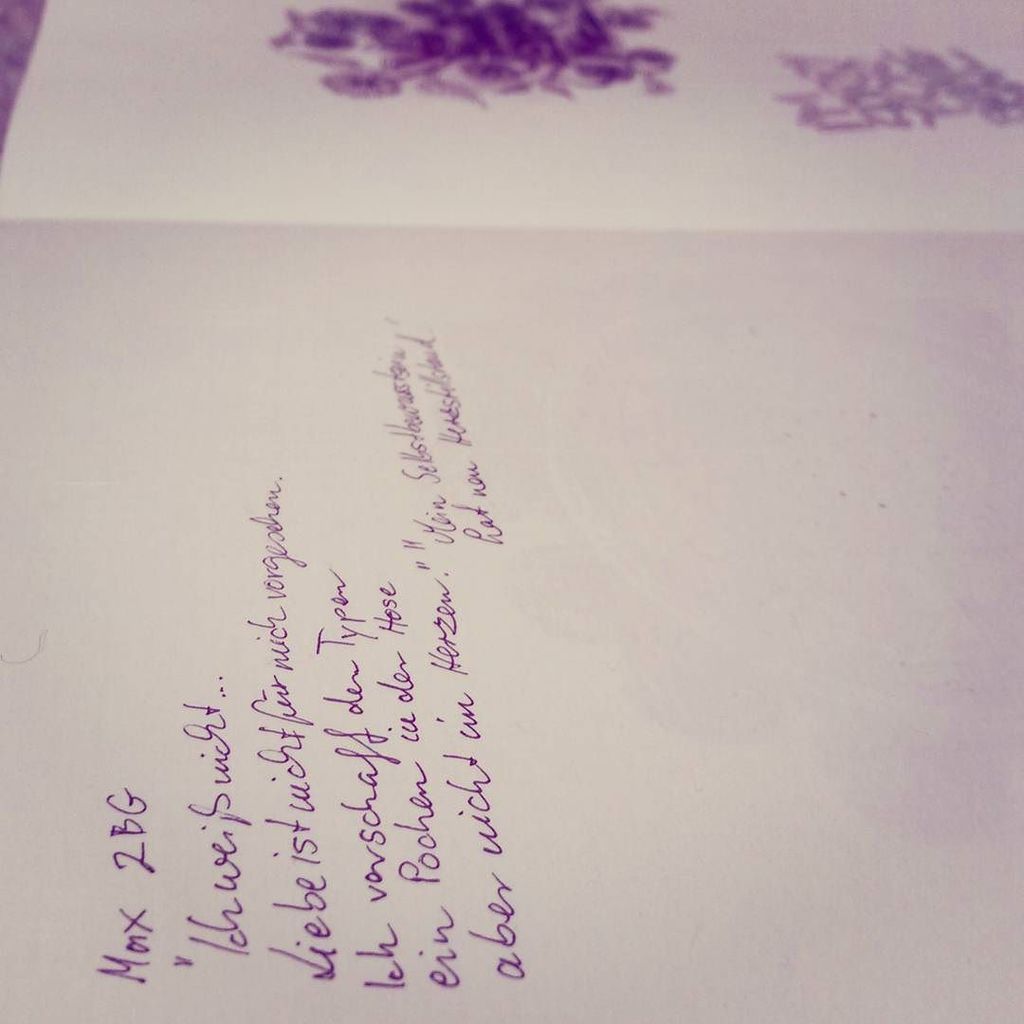 Max 2BG
"Ich weiß nicht...
Liebe ist nicht für mich vorgesehen.
Ich verschaff den Typen
ein Pochen in der Hose
aber nicht im Herzen."
"Mein Selbstbewusstsein
hat nen Herzstillstand"